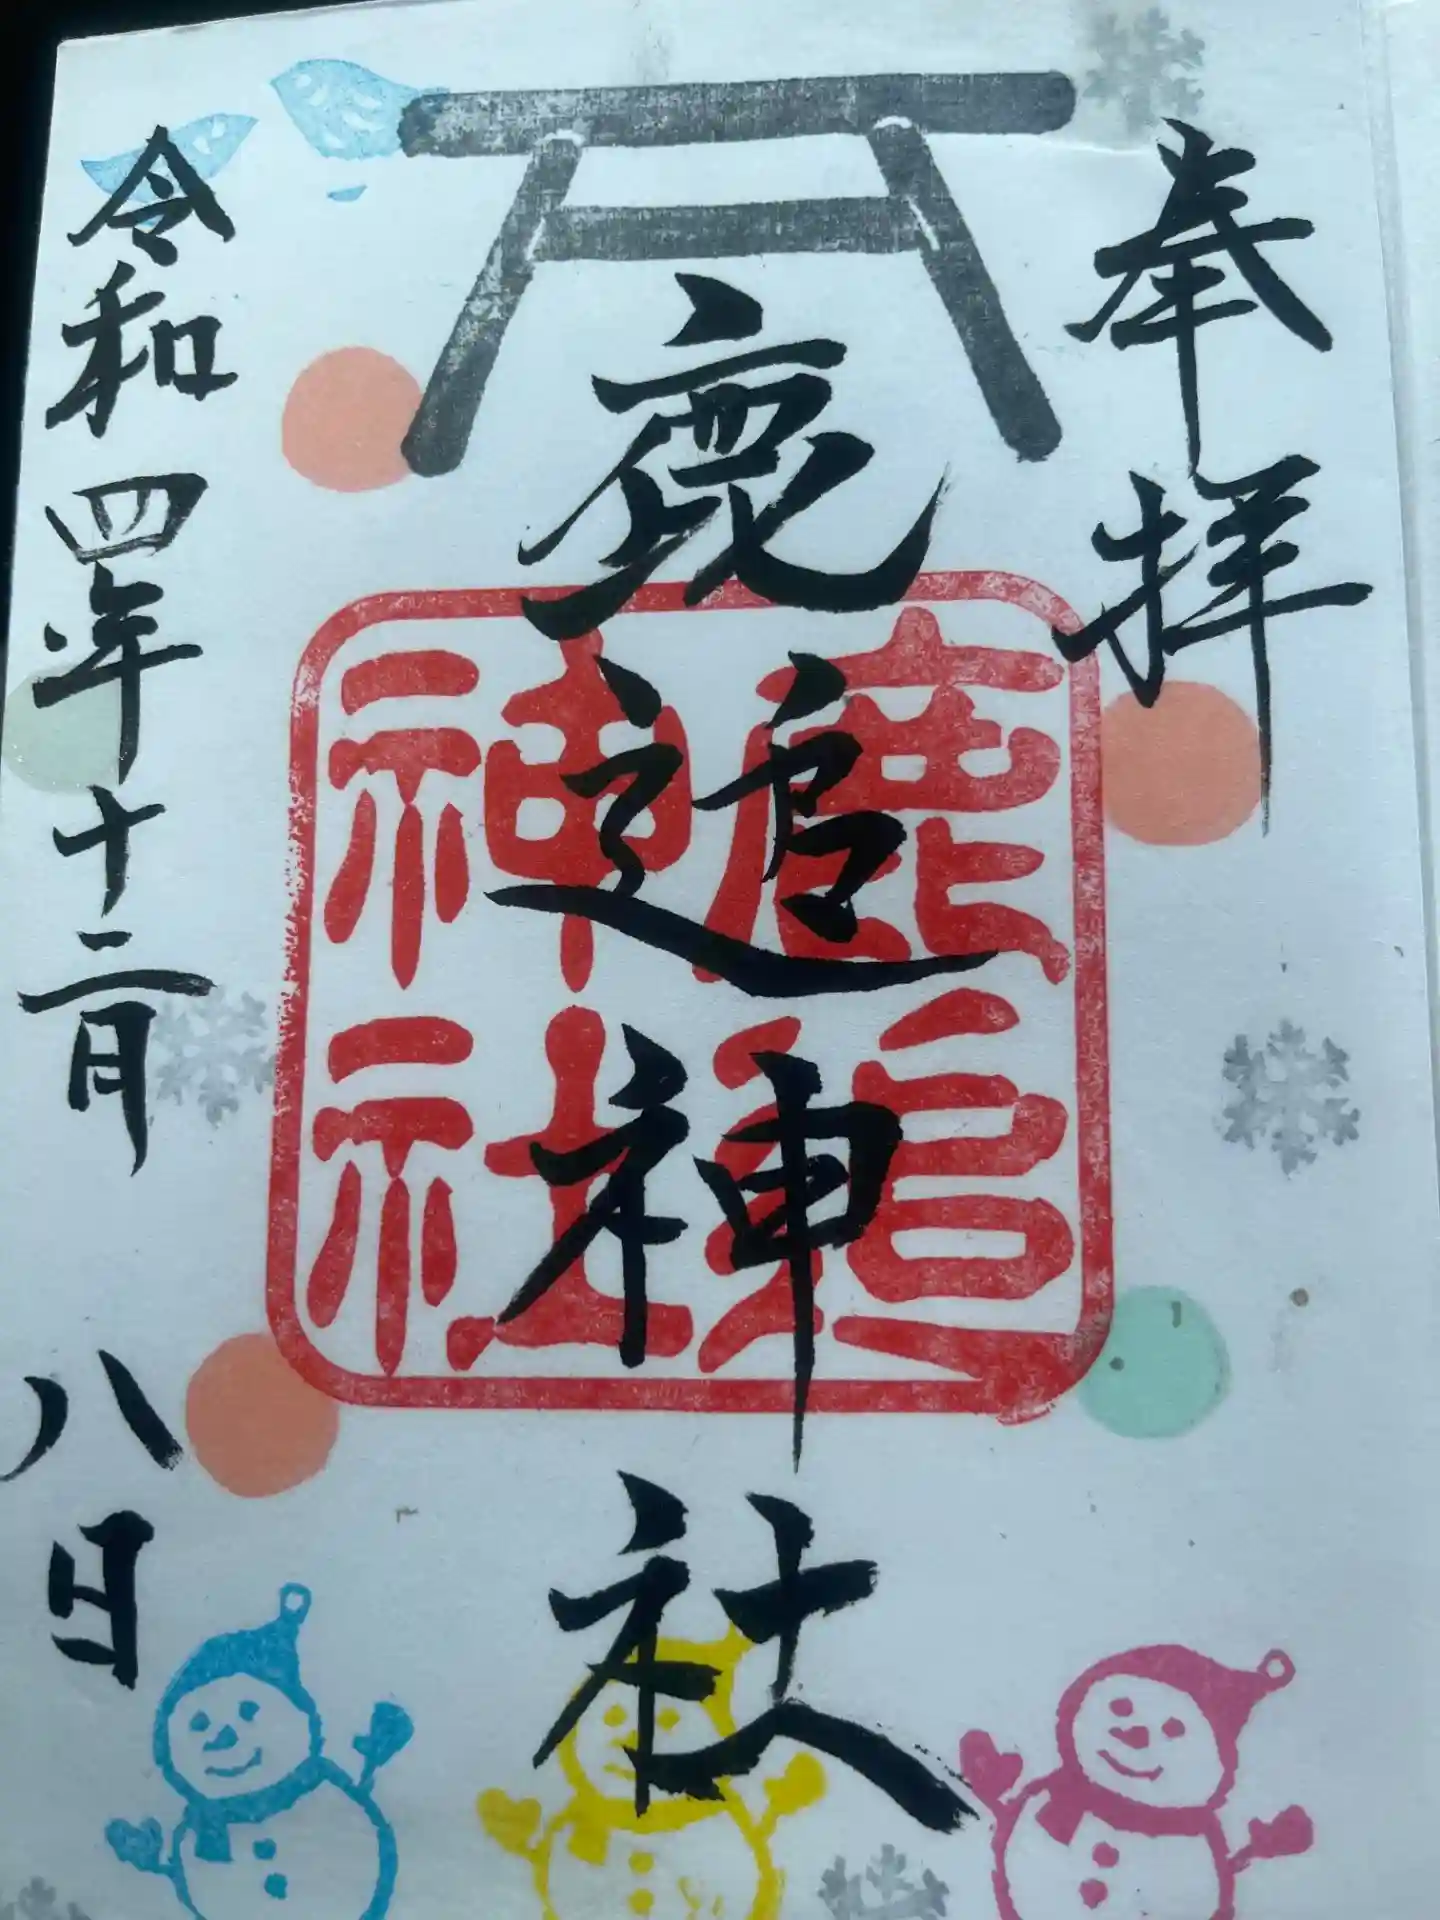 奉拝
鹿追神社
鹿追
神社
令和四年十二月八日